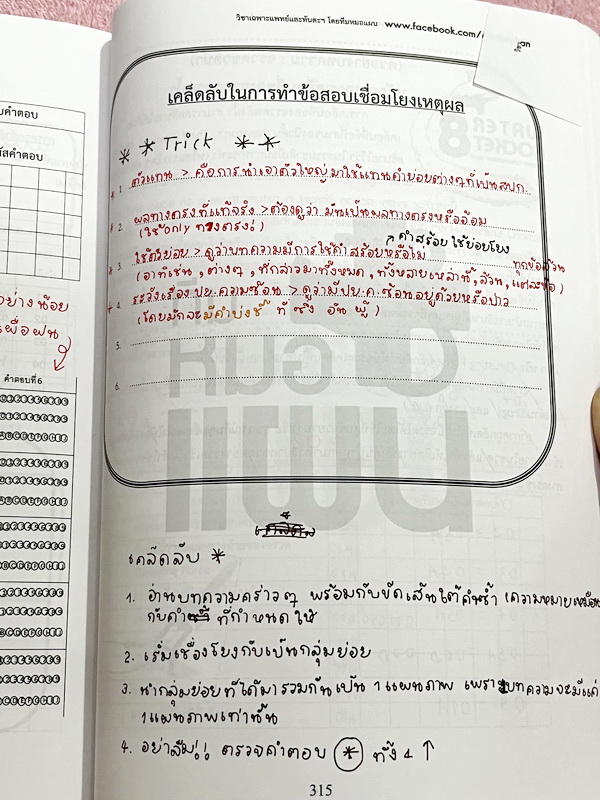 วิชาเฉพาะแพทย์และทันตะฯ โดยทีมหมอแผน - www.facebook.com/
เคล็ดลับในการทำข้อสอบเชื่อมโยงเหตุผล
* * Trick * *
* 1. ตัวแทน > คือการนำเอาตัวใหญ่มาใช้แทนคำย่อยต่างๆที่เป็นสปก.
* 2. ผลทางตรงที่แท้จริง > ต้องดูว่า มันเป็นผลทางตรงหรืออ้อม
(ใช้only ทางตรง!)
↗ คำสร้อย ใช้ย่อยโยง
* 3. ใช้ตัวย่อย > ดูว่าบทความมีการใช้คำสร้อยหรือไม่
(อาทิเช่น, ต่างๆ, ที่กล่าวมาทั้งหมด, ทั้งหลายเหล่านี้, ล้วน, แต่ละข้อ)
* 4. ระวังเรื่อง ปย.ความซ้อน > ดูว่ามีปย.ค.ซ้อนอยู่ด้วยหรือป่าว
(โดยมักจะมีคำบ่งชี้ ที่ ซึ่ง อัน ผู้)
5.
6.
เคล็ดลับ *
1. อ่านบทความคร่าวๆ พร้อมกับขีดเส้นใต้คำซ้ำ (ความหมายเหมือน
กับคำ ที่กำหนดให้
2. เริ่มเชื่องโยงกับเป็นกลุ่มย่อย
3. นำกลุ่มย่อยที่ได้มารวมกันเป็น 1 แผนภาพ เพราะบทความจะมีแค่
1 แผนภาพเท่านั้น
4. อย่าลืม!! ตรวจคำตอบ * ทั้ง 4 ↑
315
คำตอบ
สคำตอบ
อย่างน้อย
คำตอบที่ 6